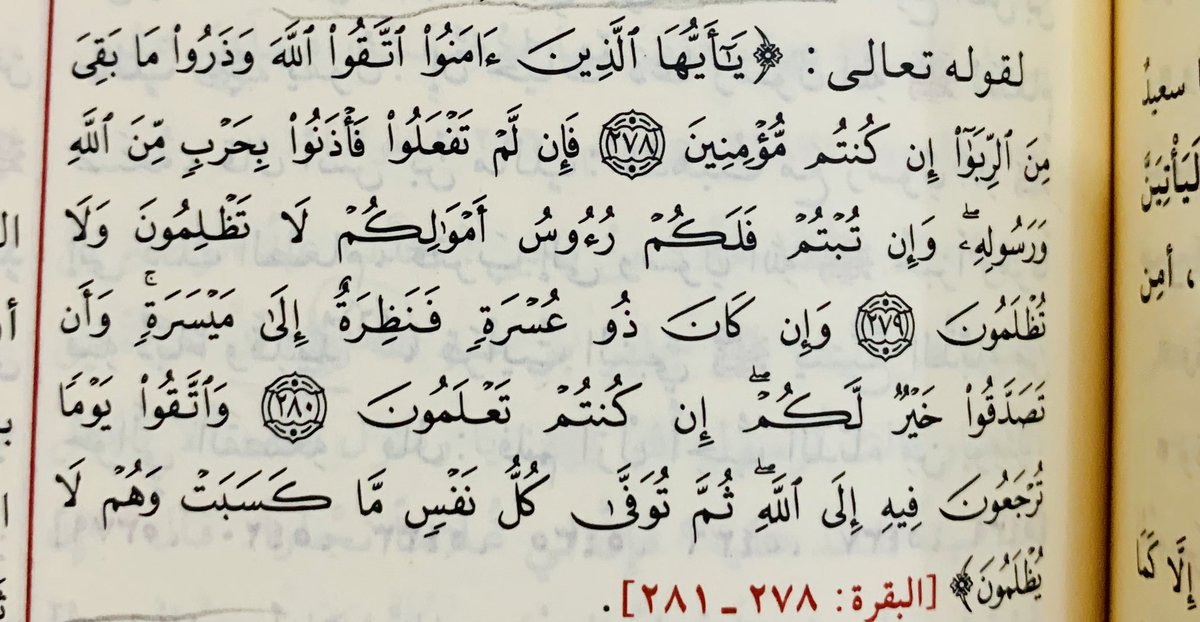 لقوله تعالى : ﴿يَٰٓأَيُّهَا ٱلَّذِينَ ءَامَنُوا۟ ٱتَّقُوا۟ ٱللَّهَ وَذَرُوا۟ مَا بَقِىَ
مِنَ ٱلرِّبَوٰٓا۟ إِن كُنتُم مُّؤْمِنِينَ ٢٧٨ فَإِن لَّمْ تَفْعَلُوا۟ فَأْذَنُوا۟ بِحَرْبٍ مِّنَ ٱللَّهِ
وَرَسُولِهِۦ ۖ وَإِن تُبْتُمْ فَلَكُمْ رُءُوسُ أَمْوَٰلِكُمْ لَا تَظْلِمُونَ وَلَا
تُظْلَمُونَ ٢٧٩ وَإِن كَانَ ذُو عُسْرَةٍ فَنَظِرَةٌ إِلَىٰ مَيْسَرَةٍ ۚ وَأَن
تَصَدَّقُوا۟ خَيْرٌ لَّكُمْ ۖ إِن كُنتُمْ تَعْلَمُونَ ٢٨٠ وَٱتَّقُوا۟ يَوْمًا
تُرْجَعُونَ فِيهِ إِلَى ٱللَّهِ ۖ ثُمَّ تُوَفَّىٰ كُلُّ نَفْسٍ مَّا كَسَبَتْ وَهُمْ لَا
يُظْلَمُونَ﴾ [البقرة: ٢٧٨ ـ ٢٨١] .
سعيدُ
لَيَأْتِيَنَّ
، أمِن
إِلَّا كَمَا